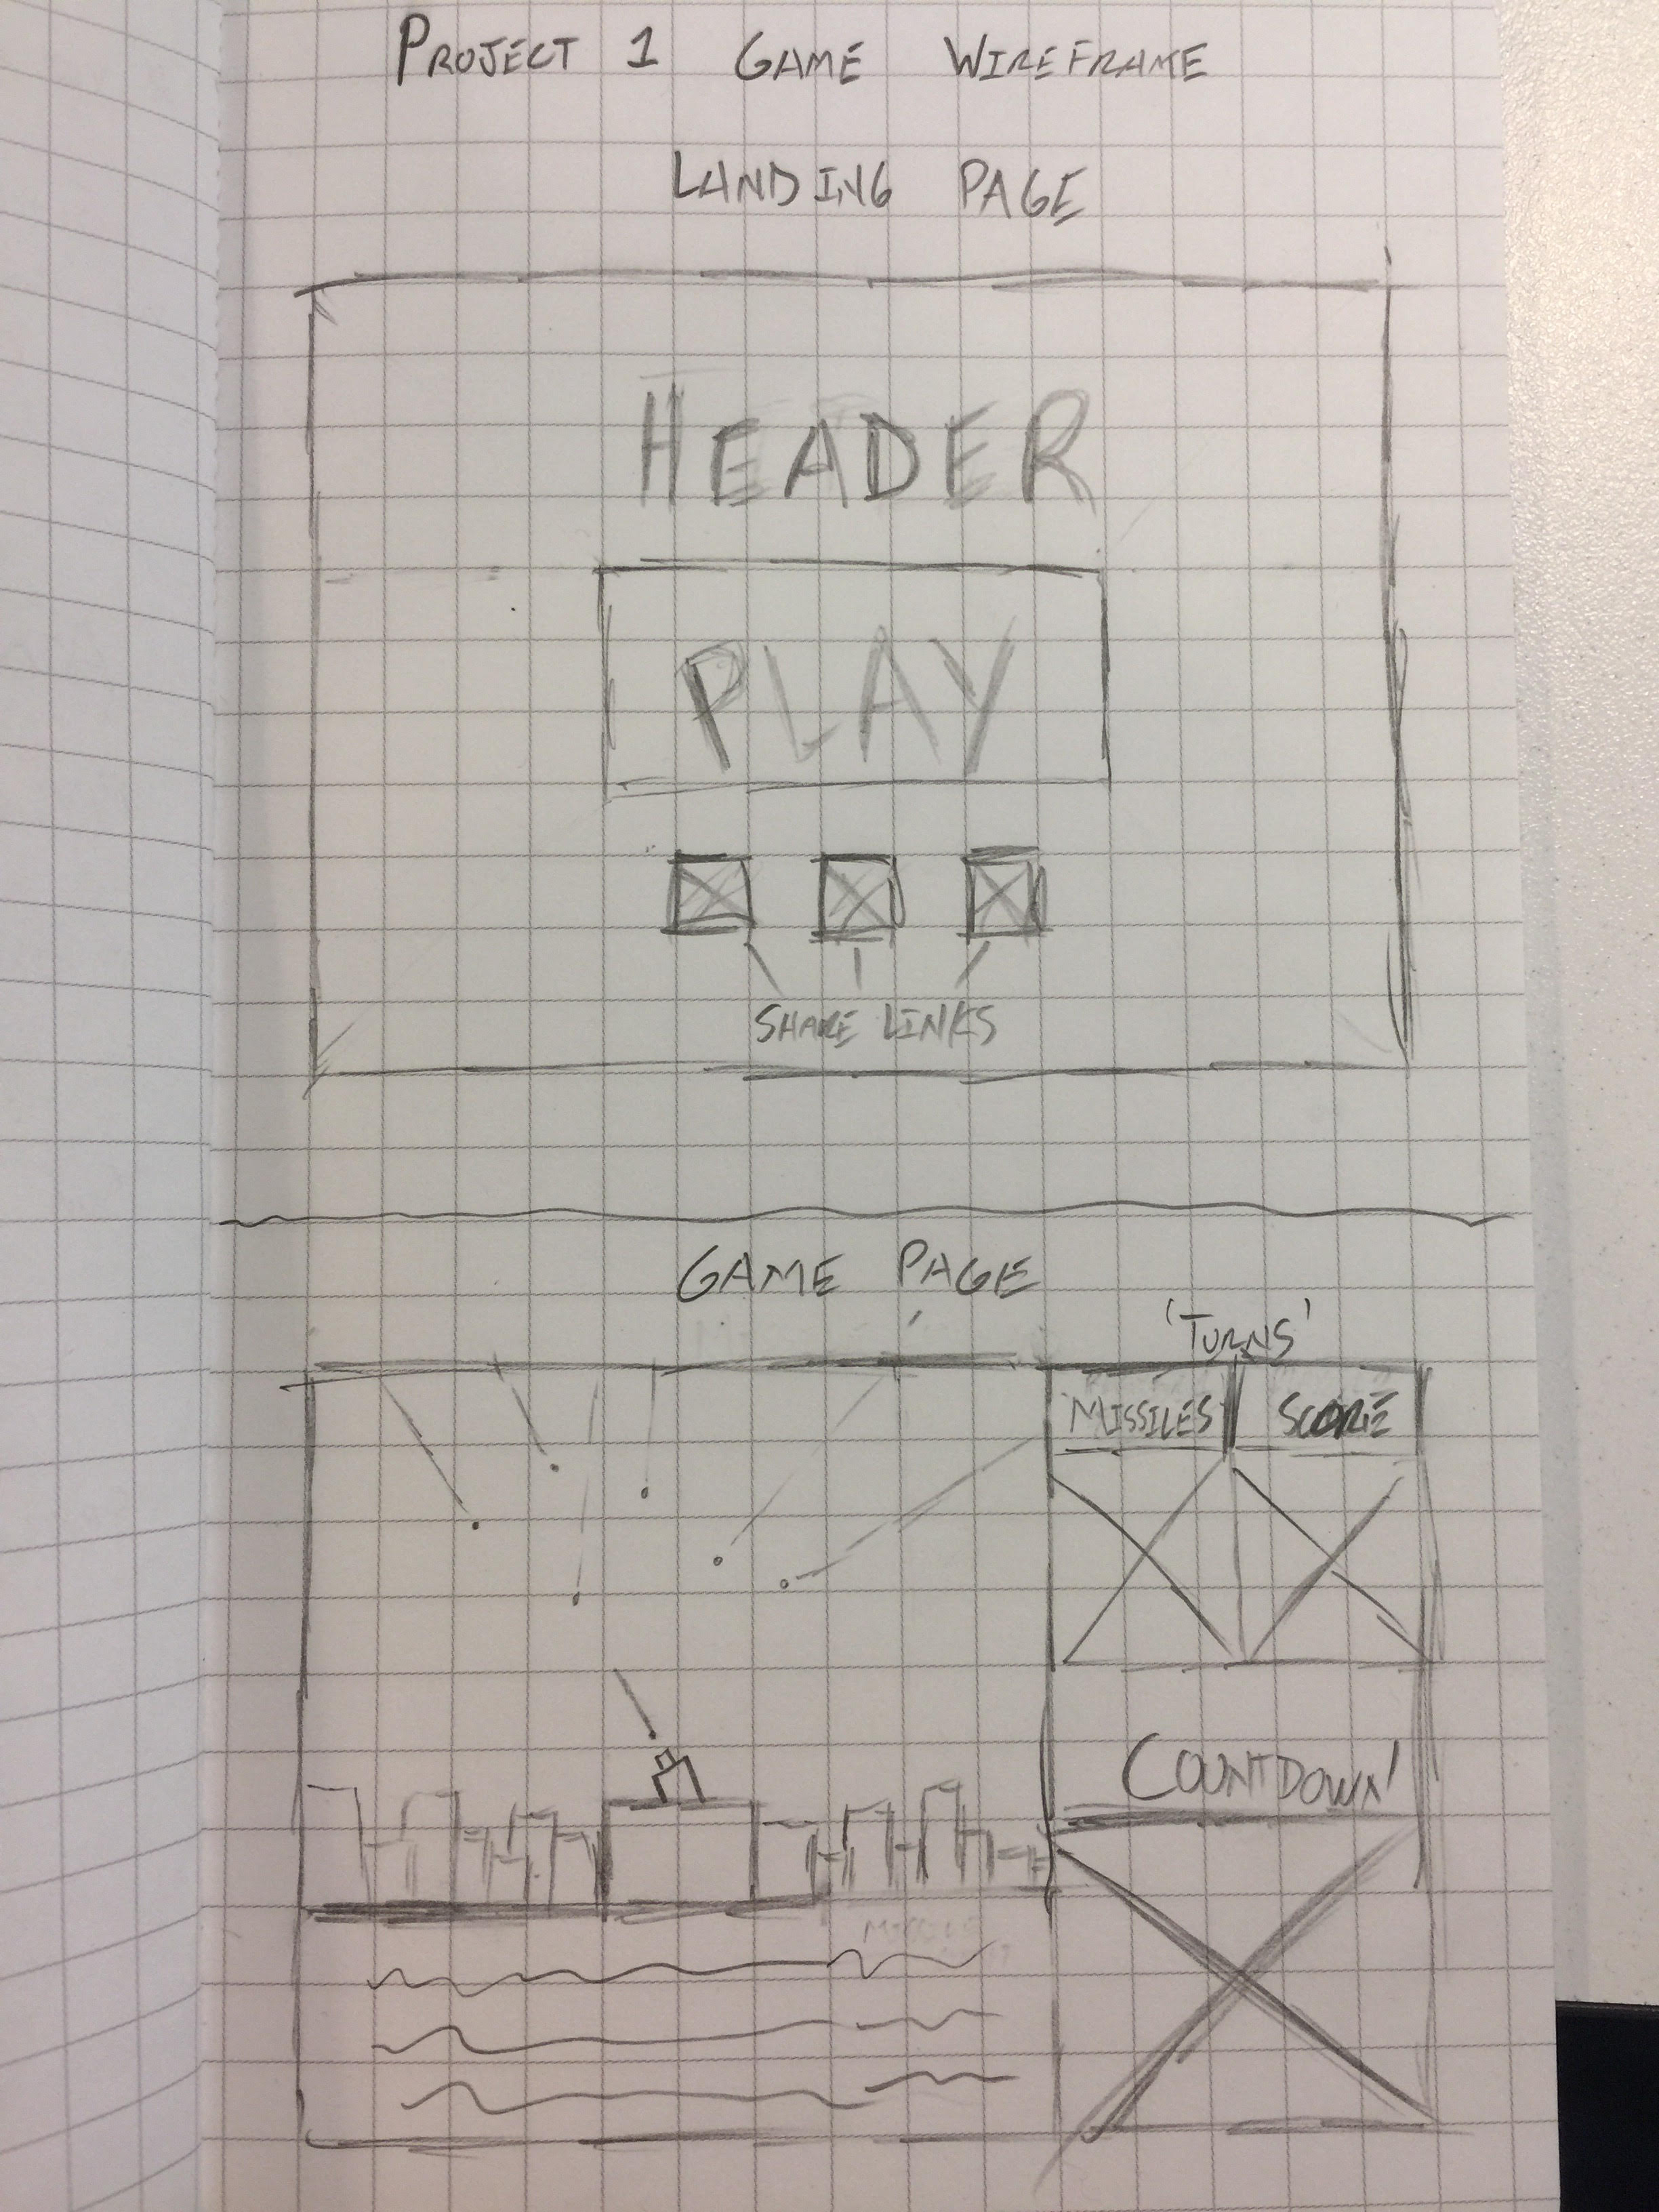 PROJECT 1 GAME WIREFRAME
LANDING PAGE
HEADER
PLAY
SHARE LINKS
GAME PAGE
'TURNS'
MISSILES SCORE
COUNTDOWN